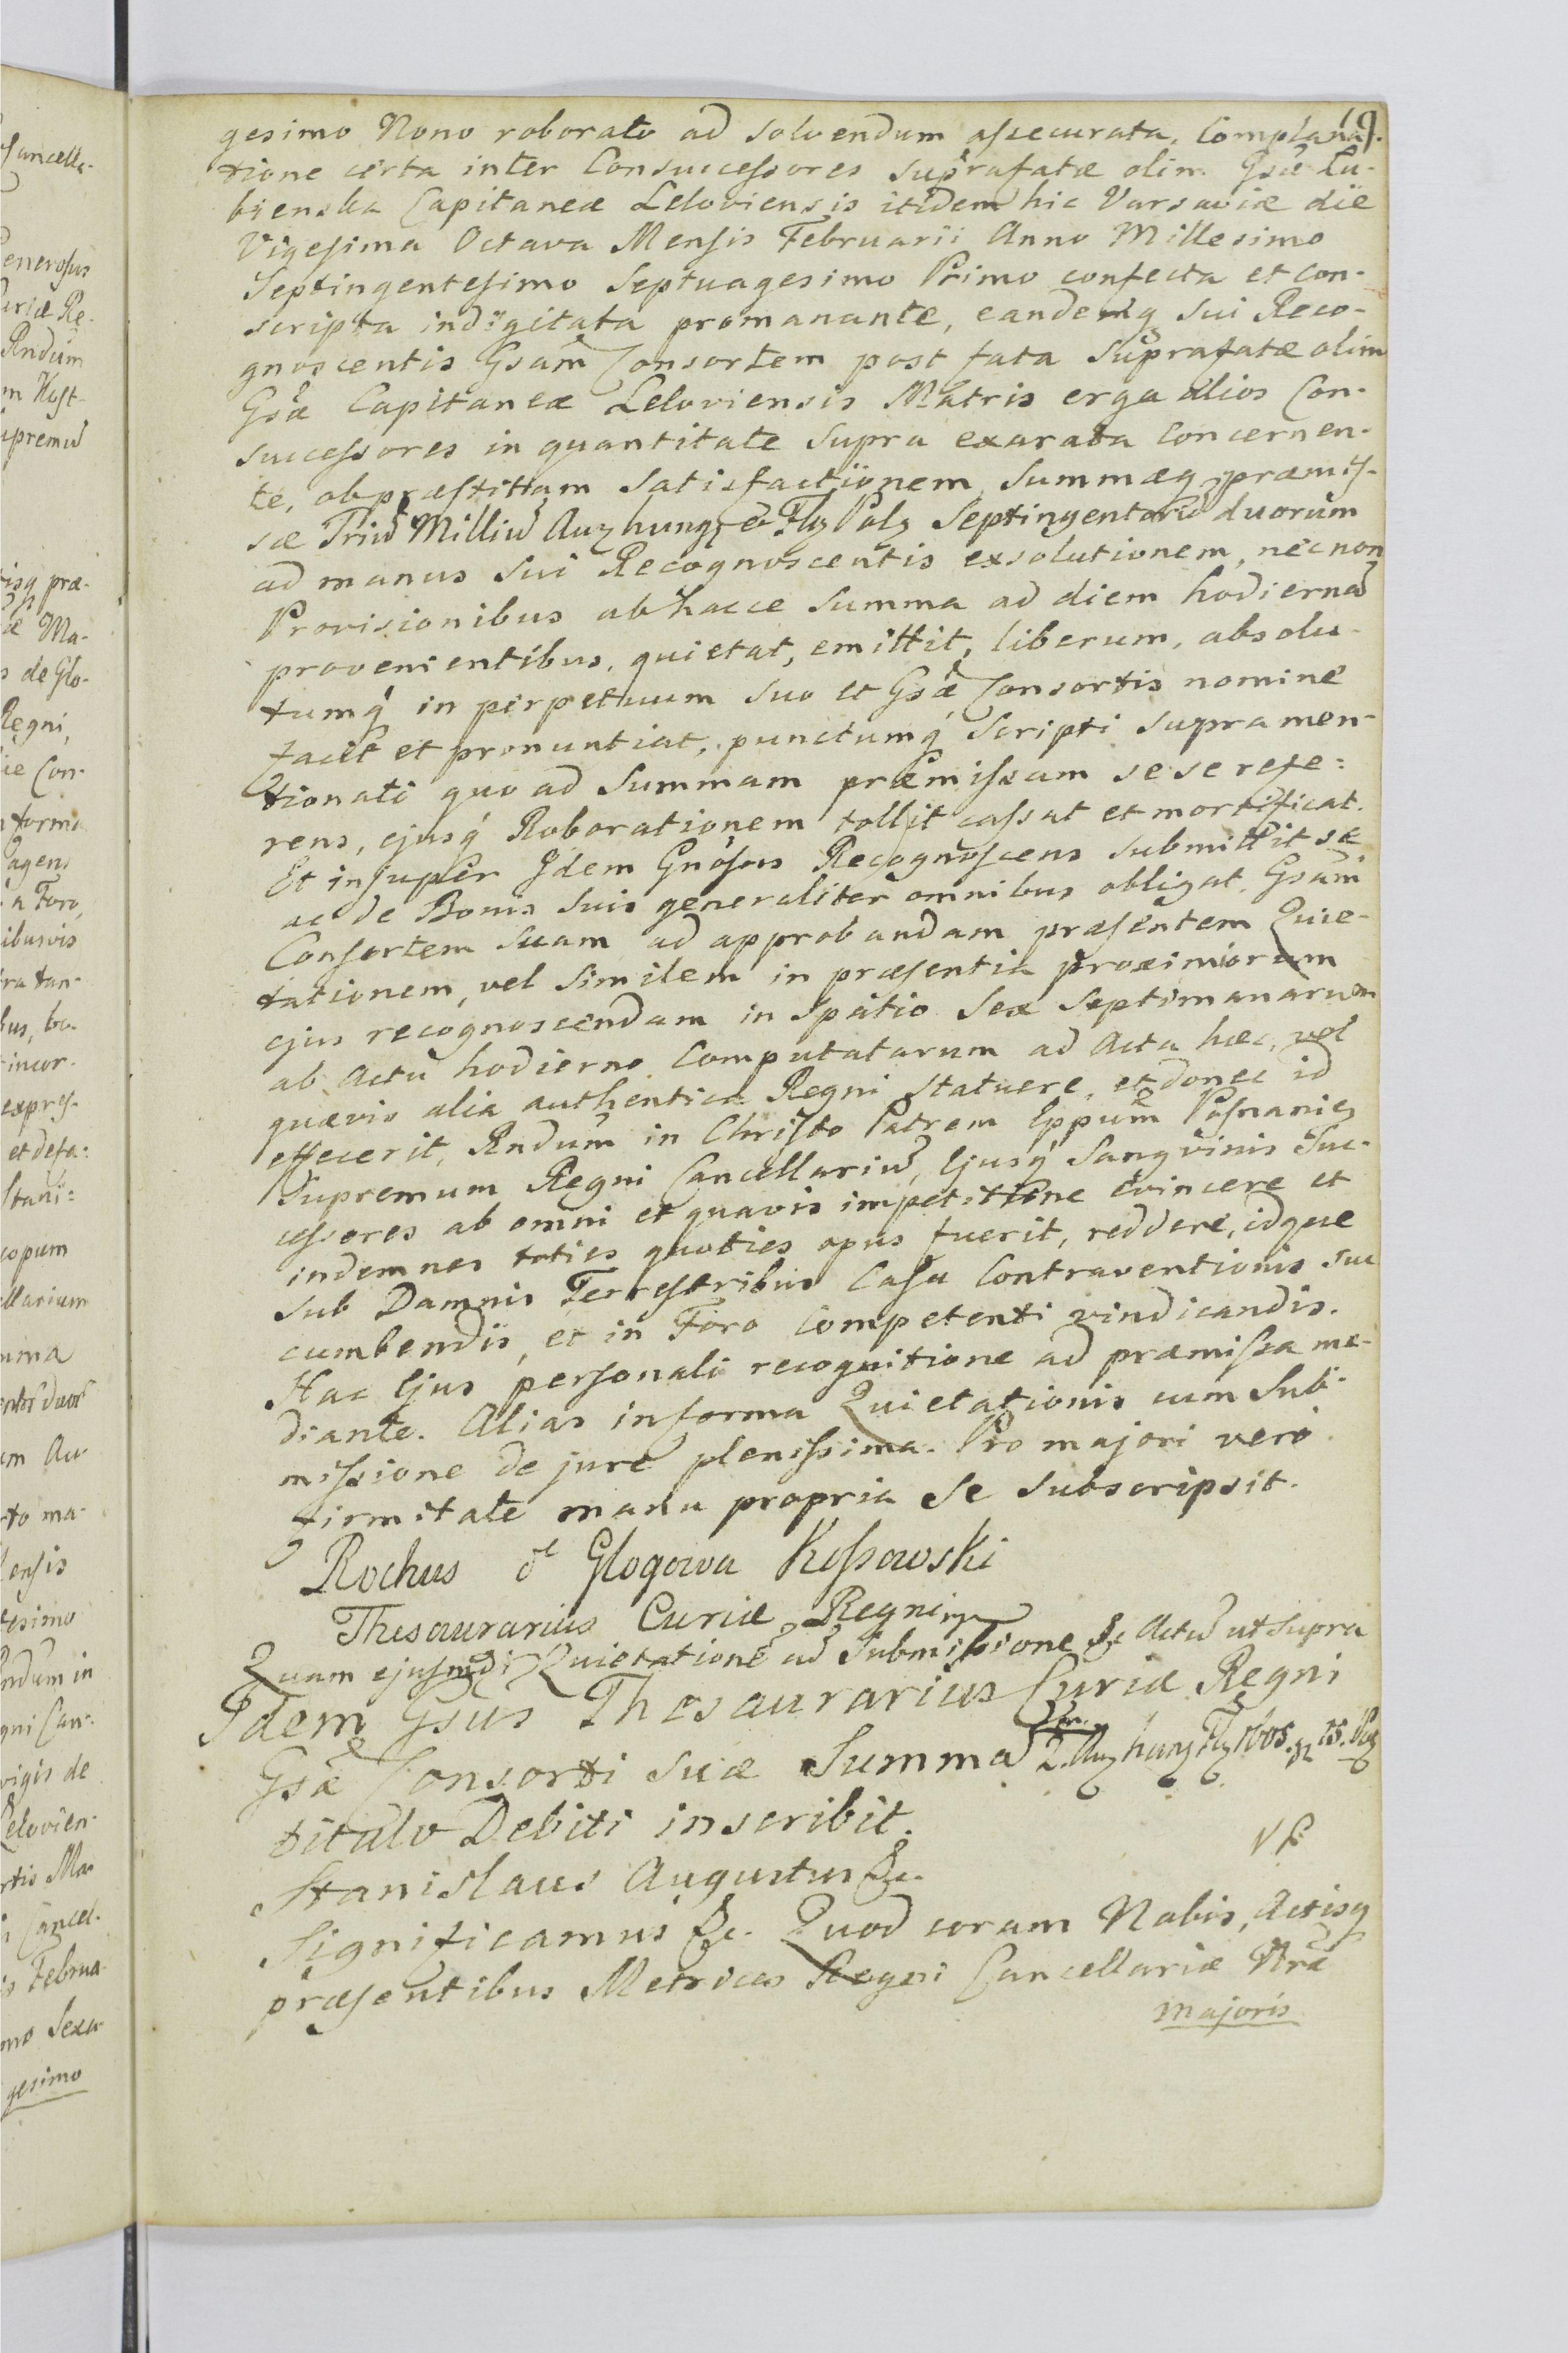 19.
gesimo Nono roborato ad solvendum assecurata, Complana-
tione certa inter Consuccessores suprafatæ olim Gsæ Łu-
bienska Capitaneæ Leloviensis itidem hic Varsaviæ die
Vigesima Octava Mensis Februarii Anno Millesimo
Septingentesimo Septuagesimo Primo confecta et con-
scripta indigitata promanante, eandemq sui Reco-
gnoscentis Gsam Consortem post fata suprafatæ olim
Gsæ Capitaneæ Leloviensis Matris erga alios Con-
successores in quantitate supra exarata concernen-
te, ob præstittam satisfactionem, summæq præmis-
sæ Triũ Milliũ Aur hung et Flg Polg Septingentorũ duorum
ad manus sui Recognoscentis exsolutionem, necnon
Provisionibus ab hacce summa ad diem hodiernã
provenientibus, quietat, emittit, liberum, absolu-
tumq in perpetuum suo et Gsæ Consortis nomine
facit et pronuntiat, punctumq scripti supramen-
tionati quo ad summam præmissam sese refe:
rens, ejusq Roborationem tollit cassat et mortificat.
Et insuper Idem Gnosus Recognoscens submittit se
ac de Bonis suis generaliter omnibus obligat, Gsam
Consortem suam ad approbandam præsentem Quie-
tationem, vel similem in præsentia proximiorum
ejus recognoscendam in spatio sex septimanarum
ab Actu hodierno computatarum ad Acta hæc, vel
quævis alia authentica Regni statuere, et donec id
effecerit, Rndum in Christo Patrem Eppum Posnanien
Supremum Regni Cancellariũ, Ejusq Sangvinis Suc-
cessores ab omni et quavis impetittione evincere et
indemnes toties quoties opus fuerit, reddere, idque
sub Damnis Terrestribus Casu Contraventionis suc
cumbendis, et in Foro Competenti vindicandis.
Hac Ejus personali recognitione ad præmissa me-
diante. Alias in forma Quietationis cum Sub-
missione de jure plenissima. Pro majori vero
firmitate manu propria se subscripsit.
Rochus de Glogowa Kossowski
Thesaurarius Curiæ Regni mp
Quam ejusmdi Quietatione ad Submissione &c Actũ ut supra
Idem Gsus Thesaurarius Curiæ Regni
Gsæ Consorti suæ Summã 2. Aur hung Flg 1605. gr 15. Polg
titulo Debiti inscribit.
Stanislaus Augustus &c.
Significamus &c. Quod coram Nobis, Actisq
præsentibus Metrices Regni Cancellariæ Nræ
majoris